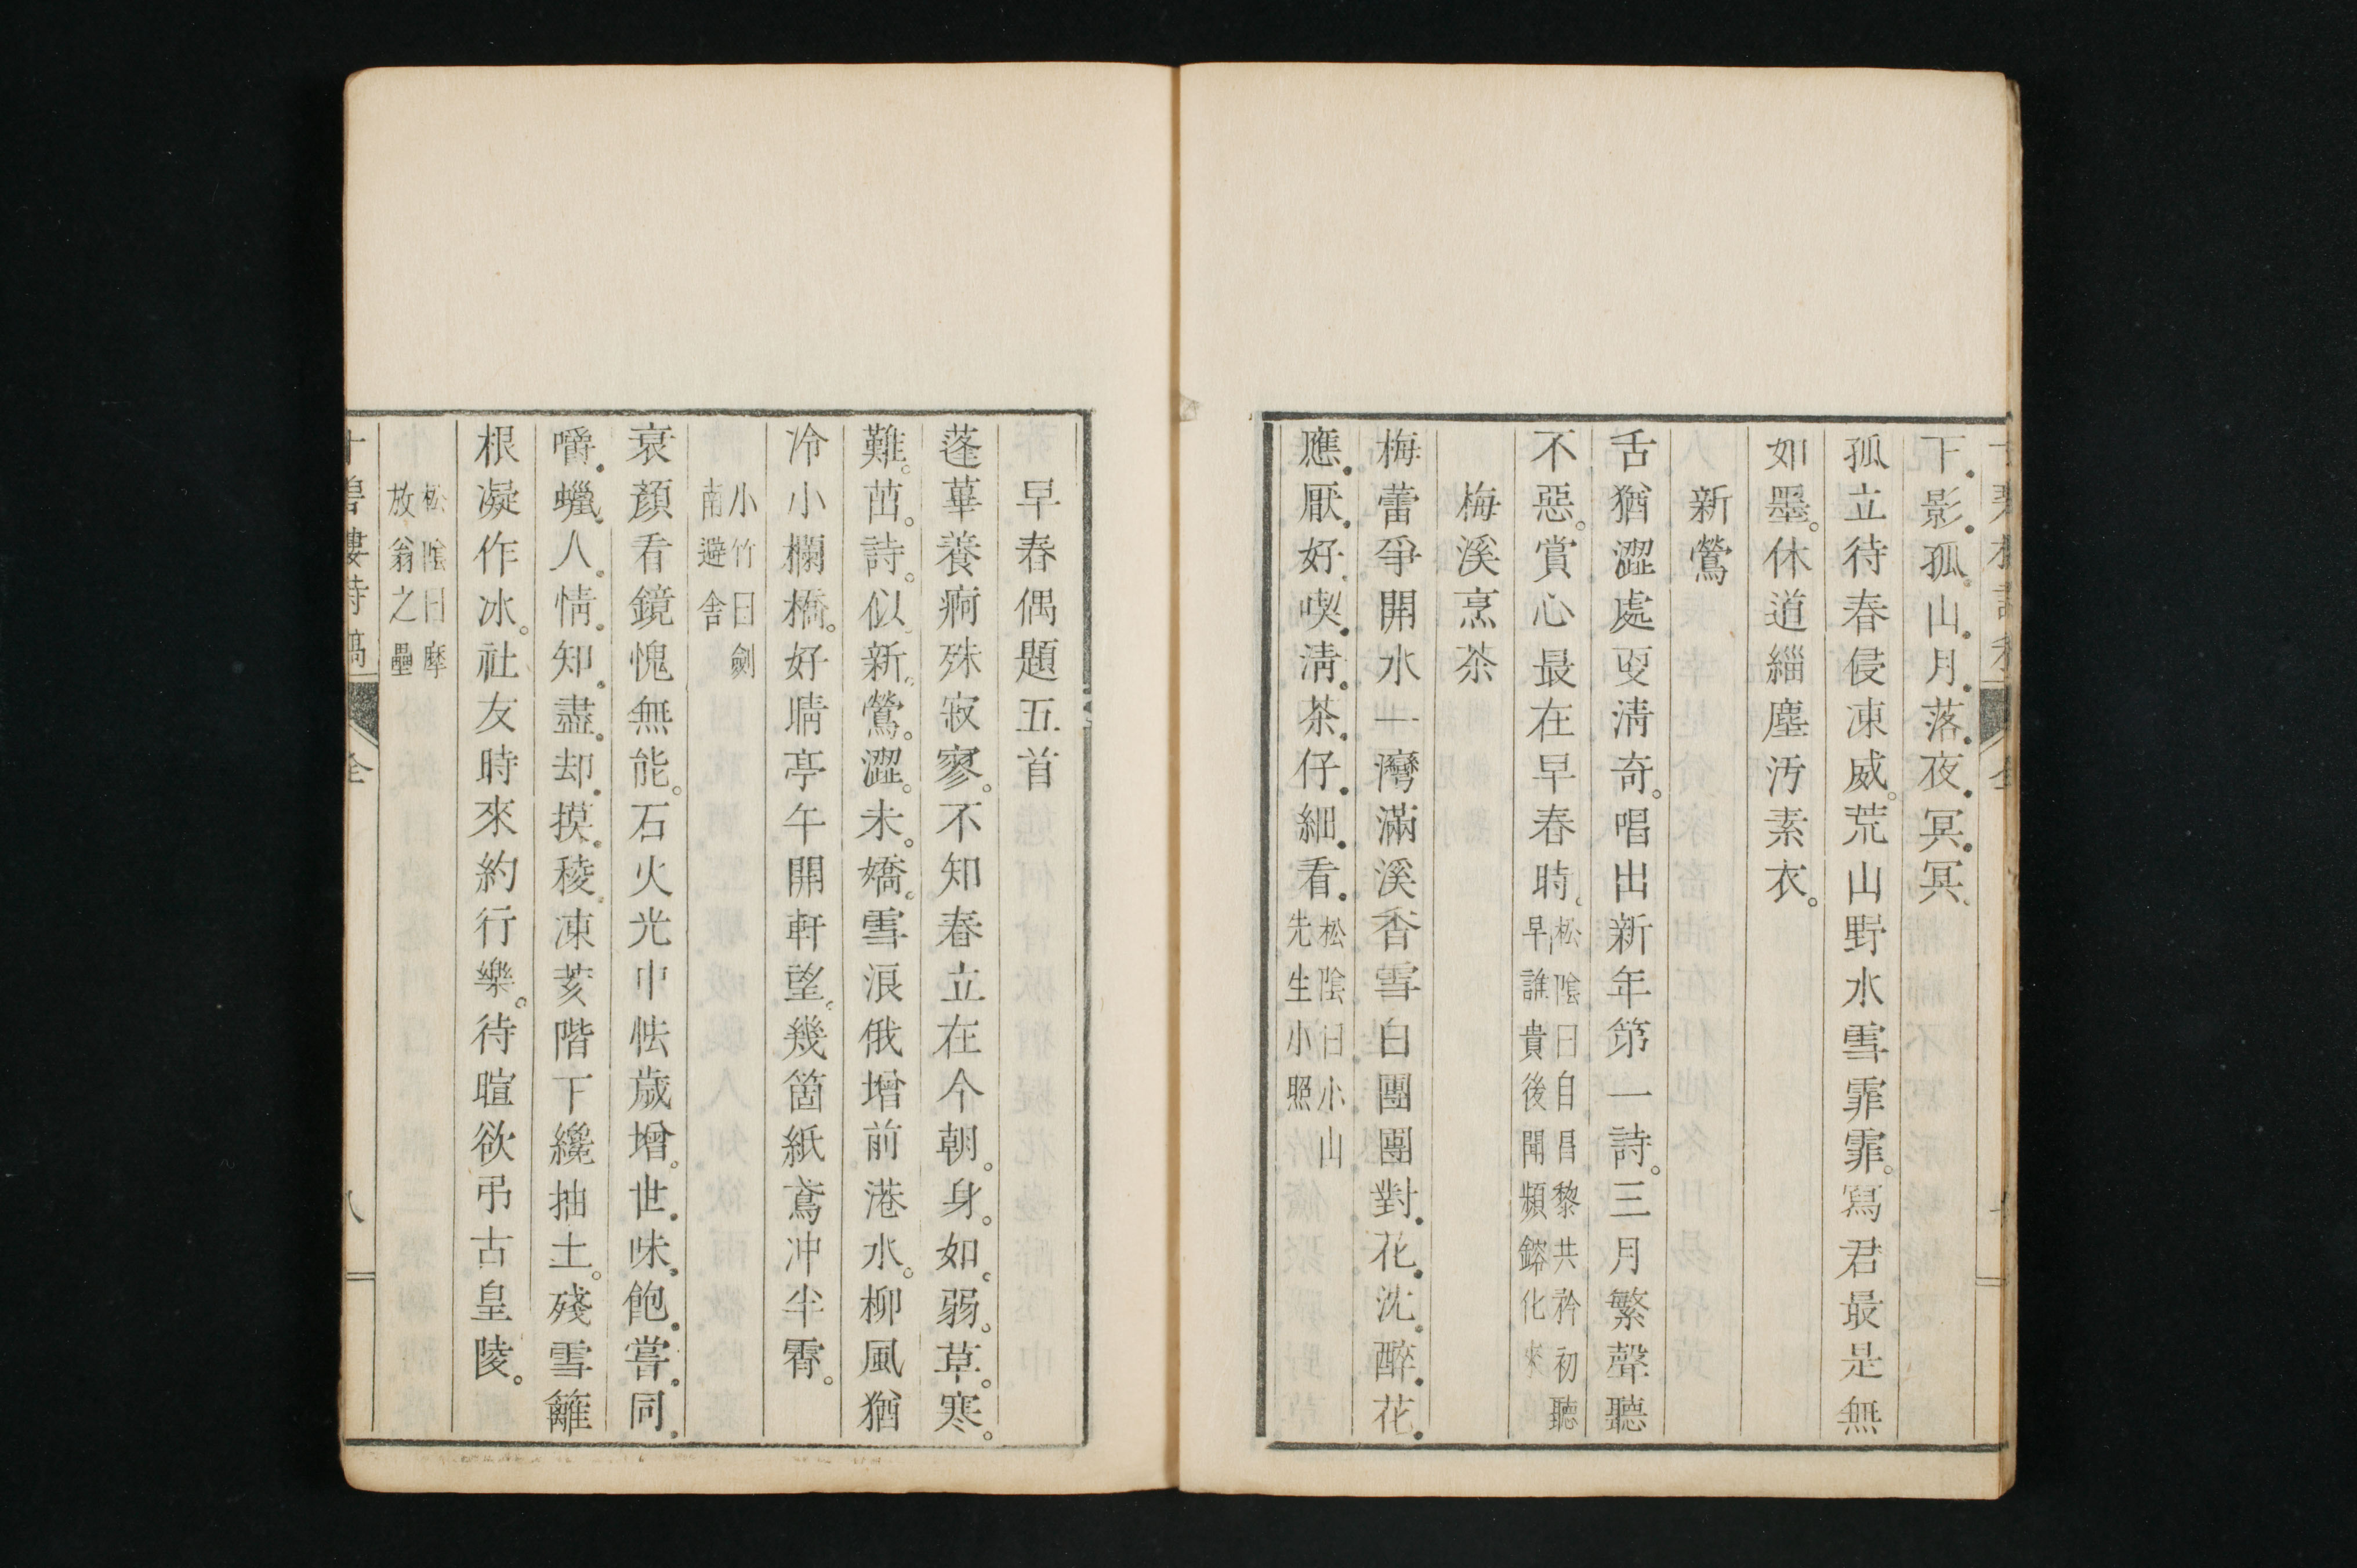 下影孤山月落夜冥冥
孤立待春侵凍威。荒山野水雪霏霏。寫君最是無
如墨。休道緇塵汚素衣。
新鶯
舌猶澀處更淸奇。唱出新年第一詩。三月繁聲聽
不惡。賞心最在早春時。
松陰曰自昌黎共衿初聽
早誰貴後聞頻鎔化來
梅溪烹茶
梅蕾爭開水一灣滿溪香雪白團團對花沈醉花
應厭好喫淸茶仔細看
松陰曰小山
先生小照
早春偶題五首
蓬蓽養痾殊寂寥。不知春立在今朝。身如弱草寒
難茁。詩似新鶯澀未嬌。雪浪俄增前港水。柳風猶
冷小欄橋。好晴亭午開軒望。幾箇紙鳶冲半霄。
小竹曰劍
南遜舍
衰顏看鏡愧無能。石火光中怯歲增。世味飽嘗同
嚼蠟人情知盡却摸稜凍荄階下纔抽土。殘雪籬
根凝作冰。社友時來約行樂。待暄欲弔古皇陵。
松陰曰摩
放翁之壘
樓詩稿 全 八